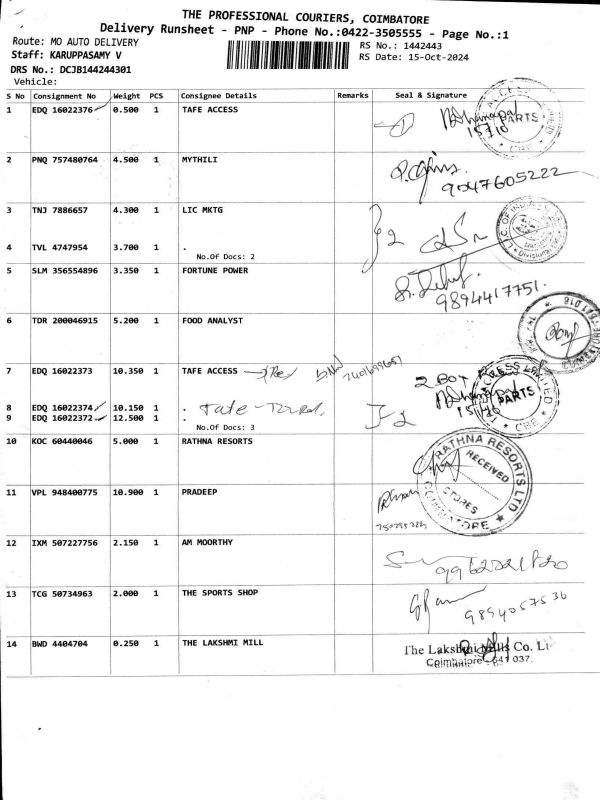 THE PROFESSIONAL COURIERS, COIMBATORE
Delivery Runsheet - PNP - Phone No.:0422-3505555 - Page No.:1
Route: MO AUTO DELIVERY
RS No.: 1442443
Staff: KARUPPASAMY V
RS Date: 15-Oct-2024
DRS No.: DCJB144244301
Vehicle:
S No Consignment No Weight PCS Consignee Details Remarks Seal & Signature
1 EDQ 16022376 0.500 1 TAFE ACCESS
PARTS
15/10
CBE
2 PNQ 757480764 4.500 1 MYTHILI
9047605222
3 TNJ 7886657 4.300 1 LIC MKTG
L.I.C. OF INDIA
4 TVL 4747954 3.700 1 .
No.Of Docs: 2
5 SLM 356554896 3.350 1 FORTUNE POWER
9894417751
6 TDR 200046915 5.200 1 FOOD ANALYST
7 EDQ 16022373 10.350 1 TAFE ACCESS
2 Box
8 EDQ 16022374 10.150 1 .
PARTS
15/10
9 EDQ 16022372 12.500 1 .
No.Of Docs: 3
CBE
10 KOC 60440046 5.000 1 RATHNA RESORTS
RATHNA RESORTS LTD
RECEIVED
STORES
COIMBATORE
11 VPL 948400775 10.900 1 PRADEEP
12 IXM 507227756 2.150 1 AM MOORTHY
13 TCG 50734963 2.000 1 THE SPORTS SHOP
9894057536
14 BWD 4404704 0.250 1 THE LAKSHMI MILL
The Lakshmi Mills Co. Lt
Coimbatore - 641 037.